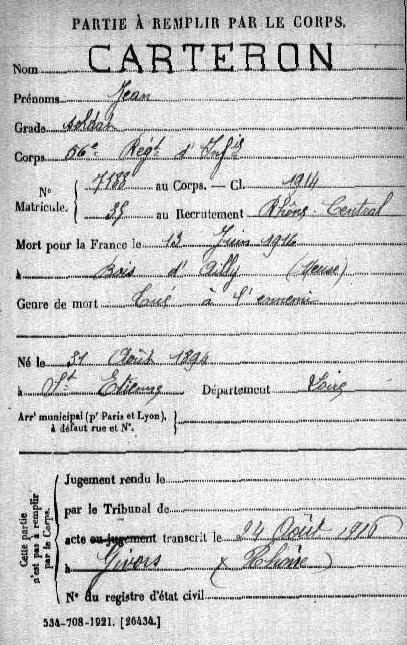 PARTIE À REMPLIR PAR LE CORPS.
Nom CARTERON
Prénoms Jean
Grade soldat
Corps 56e Régt d'Infie
N° Matricule. 7188 au Corps. — Cl. 1914
35 au Recrutement Rhône-Central
Mort pour la France le 13 Juin 1914
à Bois d'Ailly (Meuse)
Genre de mort Tué à l'ennemi
Né le 31 Août 1894
à St Etienne Département Loire
Arrt municipal (pr Paris et Lyon), à défaut rue et N°.
Cette partie n'est pas à remplir par le Corps.
Jugement rendu le
par le Tribunal de
acte ou jugement transcrit le 24 Août 1916
à Givors (Rhône)
N° du registre d'état civil
534-708-1921. [26434.]